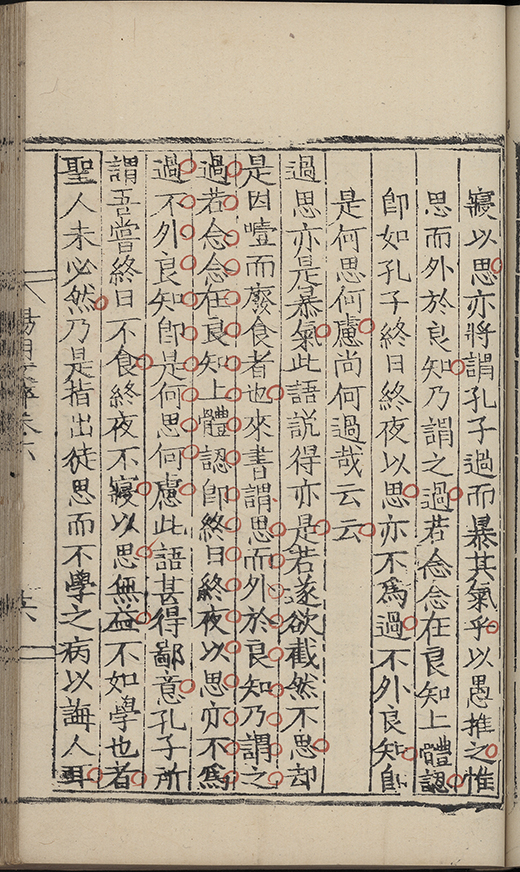 寢以思亦將謂孔子過而暴其氣乎以愚推之惟
思而外於良知乃謂之過若念念在良知上體認
卽如孔子終日終夜以思亦不爲過不外良知卽
是何思何慮尚何過哉云云
過思亦是暴氣此語説得亦是若遂欲截然不思却
是因噎而廢食者也來書謂思而外於良知乃謂之
過若念念在良知上體認卽終日終夜以思亦不爲
過不外良知卽是何思何慮此語甚得鄙意孔子所
謂吾嘗終日不食終夜不寢以思無益不如學也者
聖人未必然乃是指出徒思而不學之病以誨人耳